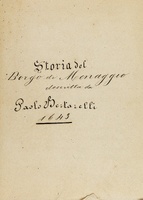 Storia del
Borgo di Menaggio
descritta da
Paolo Bertarelli
1645